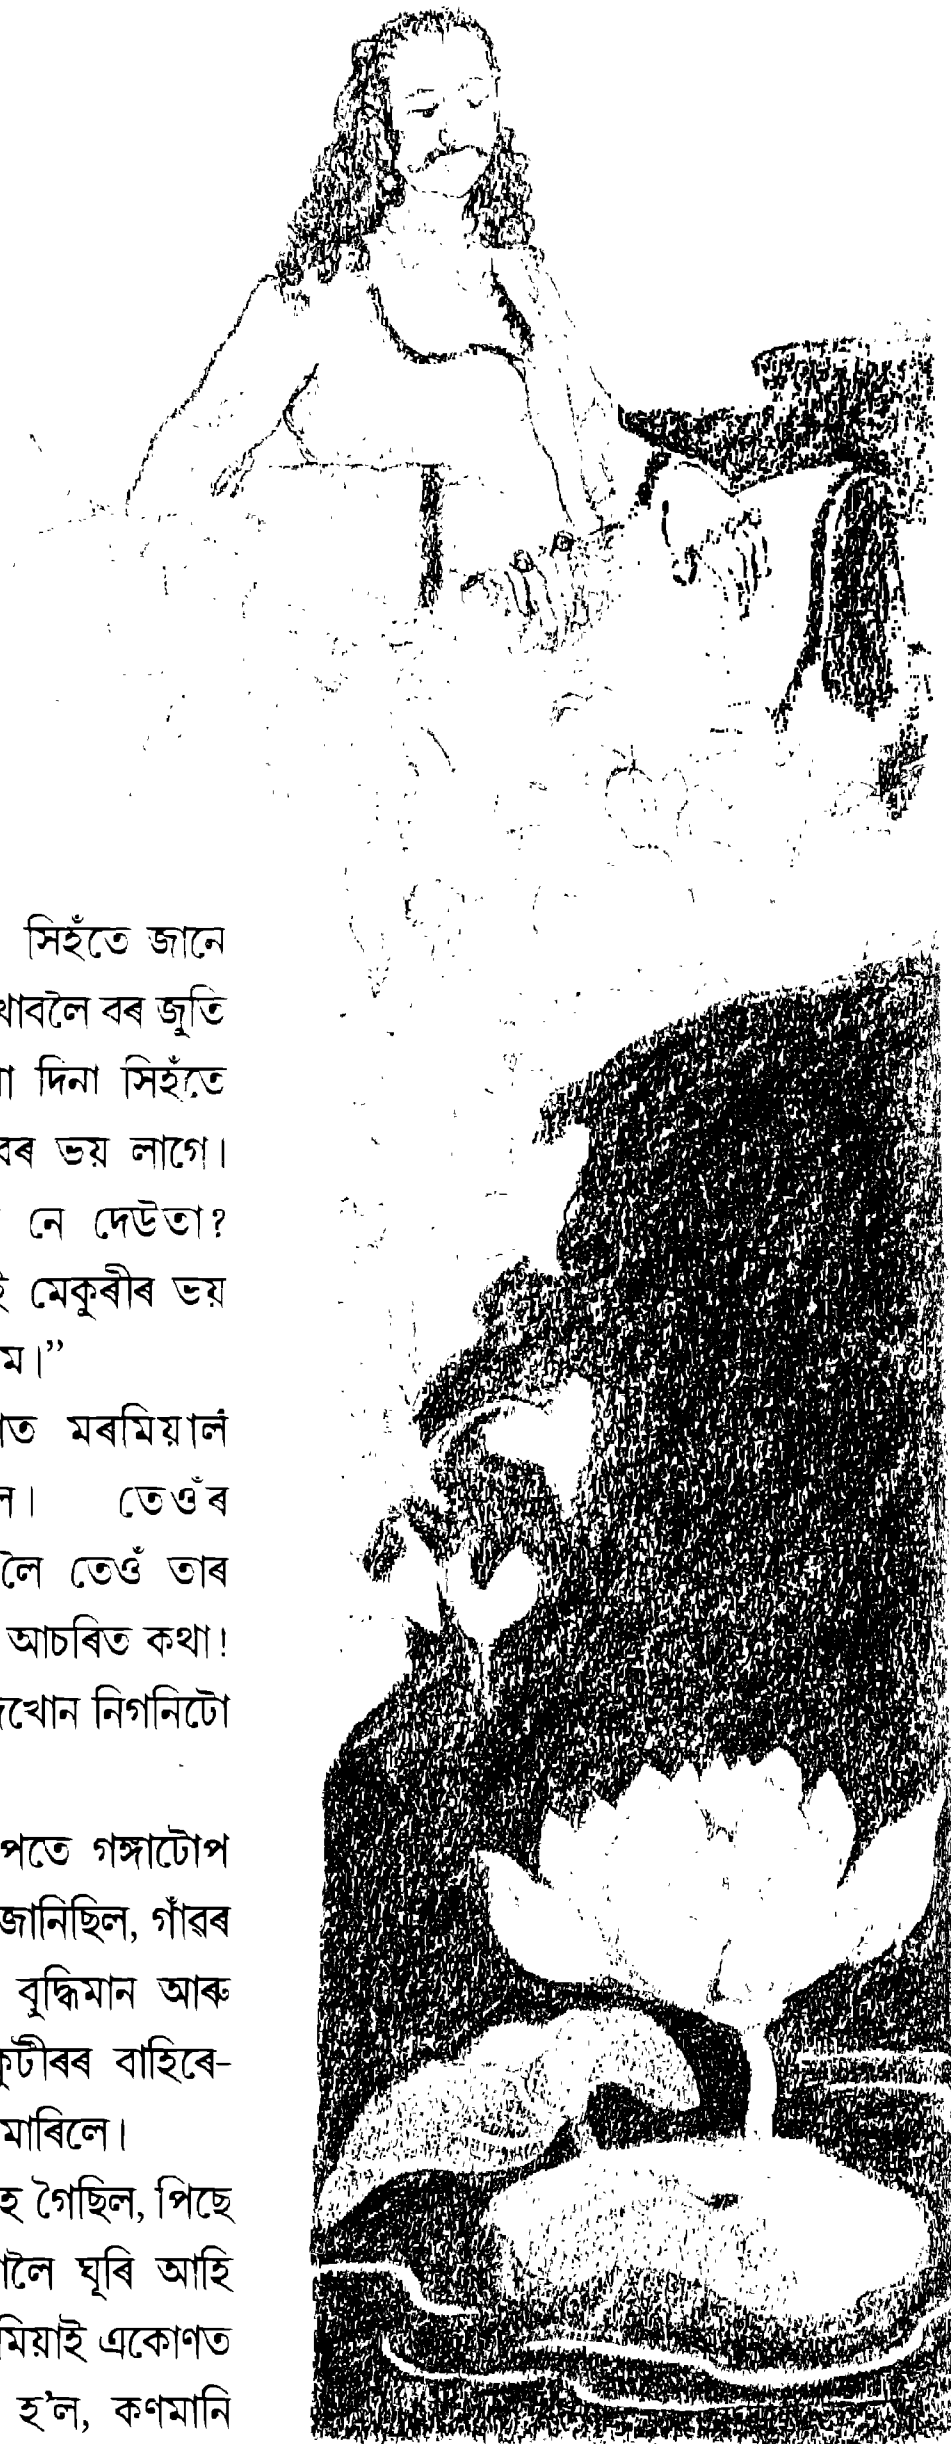 সিহঁতে জানে
খাবলৈ বৰ জুতি
দিনা সিহঁতে
ভয় লাগে।
নে দেউতা?
মেকুৰীৰ ভয়
মৰমিয়াল
তেওঁৰ
তেওঁ তাৰ
আচৰিত কথা!
নিগনিটো
গঙ্গাটোপ
জানিছিল, গাঁৱৰ
বুদ্ধিমান আৰু
কুটীৰৰ বাহিৰে-
মাৰিলে।
গৈছিল, পিছে
ঘূৰি আহি
একোণত
হ'ল, কণমানি